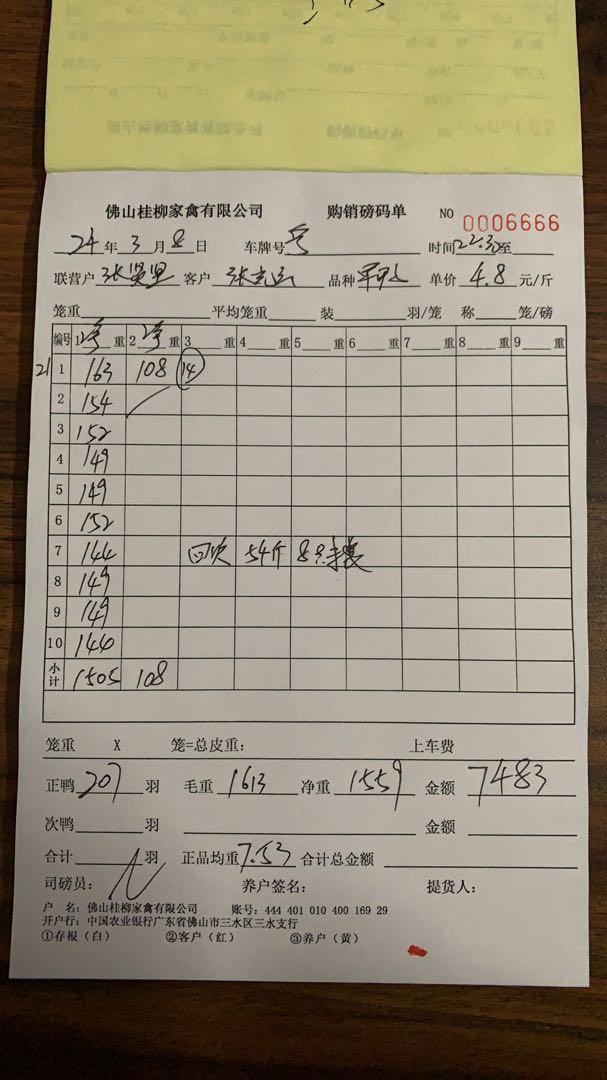 佛山桂柳家禽有限公司 购销磅码单 NO 0006666
24年3月8日 车牌号 时间22:30至
联营户张贤里 客户张志运 品种 单价4.8元/斤
笼重 平均笼重 装 羽/笼 称 笼/磅
编号 1 重 2 重 3 重 4 重 5 重 6 重 7 重 8 重 9 重
21 1 163 108 14
2 154
3 152
4 149
5 149
6 152
7 144 54斤 8只
8 149
9 149
10 144
小计 1505 108
笼重 X 笼=总皮重: 上车费
正鸭207羽 毛重1613 净重1559 金额7483
次鸭 羽 金额
合计 羽 正品均重7.53 合计总金额
司磅员: 养户签名: 提货人:
户 名: 佛山桂柳家禽有限公司 账号: 444 401 010 400 169 29
开户行: 中国农业银行广东省佛山市三水区三水支行
①存根(白) ②客户(红) ③养户(黄)